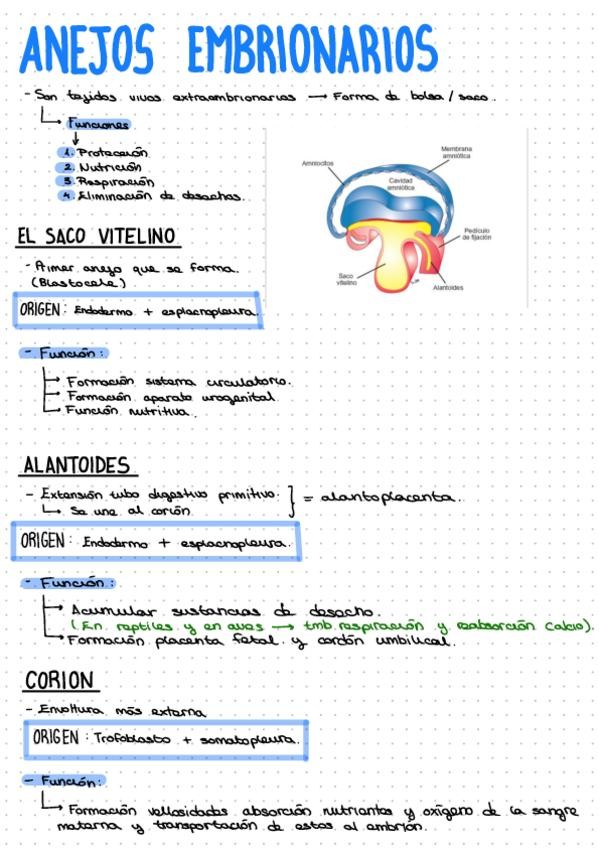 ANEJOS EMBRIONARIOS
- Son tejidos vivos extraembrionarios → Forma de bolsa / saco.
Funciones
1. Protección
2. Nutrición
3. Respiración
4. Eliminación de desechos.
Membrana
amniótica
Amniocitos
Cavidad
amniótica
Pedículo
de fijación
Saco
vitelino
Alantoides
EL SACO VITELINO
- Primer anejo que se forma.
(Blastocele)
ORIGEN: Endodermo + esplacnopleura.
- Función:
→ Formación sistema circulatorio.
→ Formación aparato urogenital.
→ Función nutritiva.
ALANTOIDES
- Extensión tubo digestivo primitivo. } = alantoplacenta.
↳ Se une al corión
ORIGEN: Endodermo + esplacnopleura.
- Función:
→ Acumular sustancias de desecho.
(En reptiles y en aves → tmb respiración y reabsorción calcio).
→ Formación placenta fetal y cordón umbilical.
CORION
- Envoltura más externa
ORIGEN: Trofoblasto + somatopleura.
- Función:
→ Formación vellosidades absorción nutrientes y oxígeno de la sangre
materna y transportación de estos al embrión.